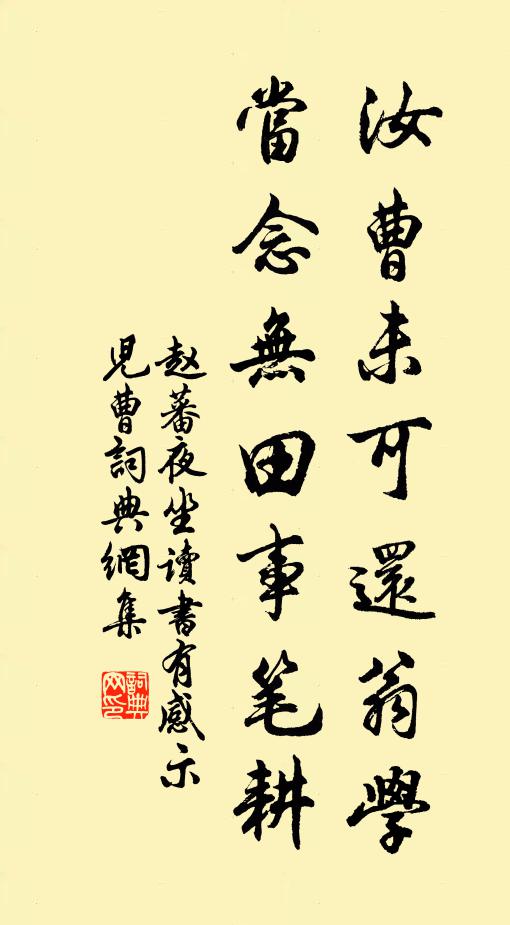 汝曹未可還翁學
當念無田事笔耕
赵蕃夜坐讀書有感示
児曹詞典網集
詞典网印